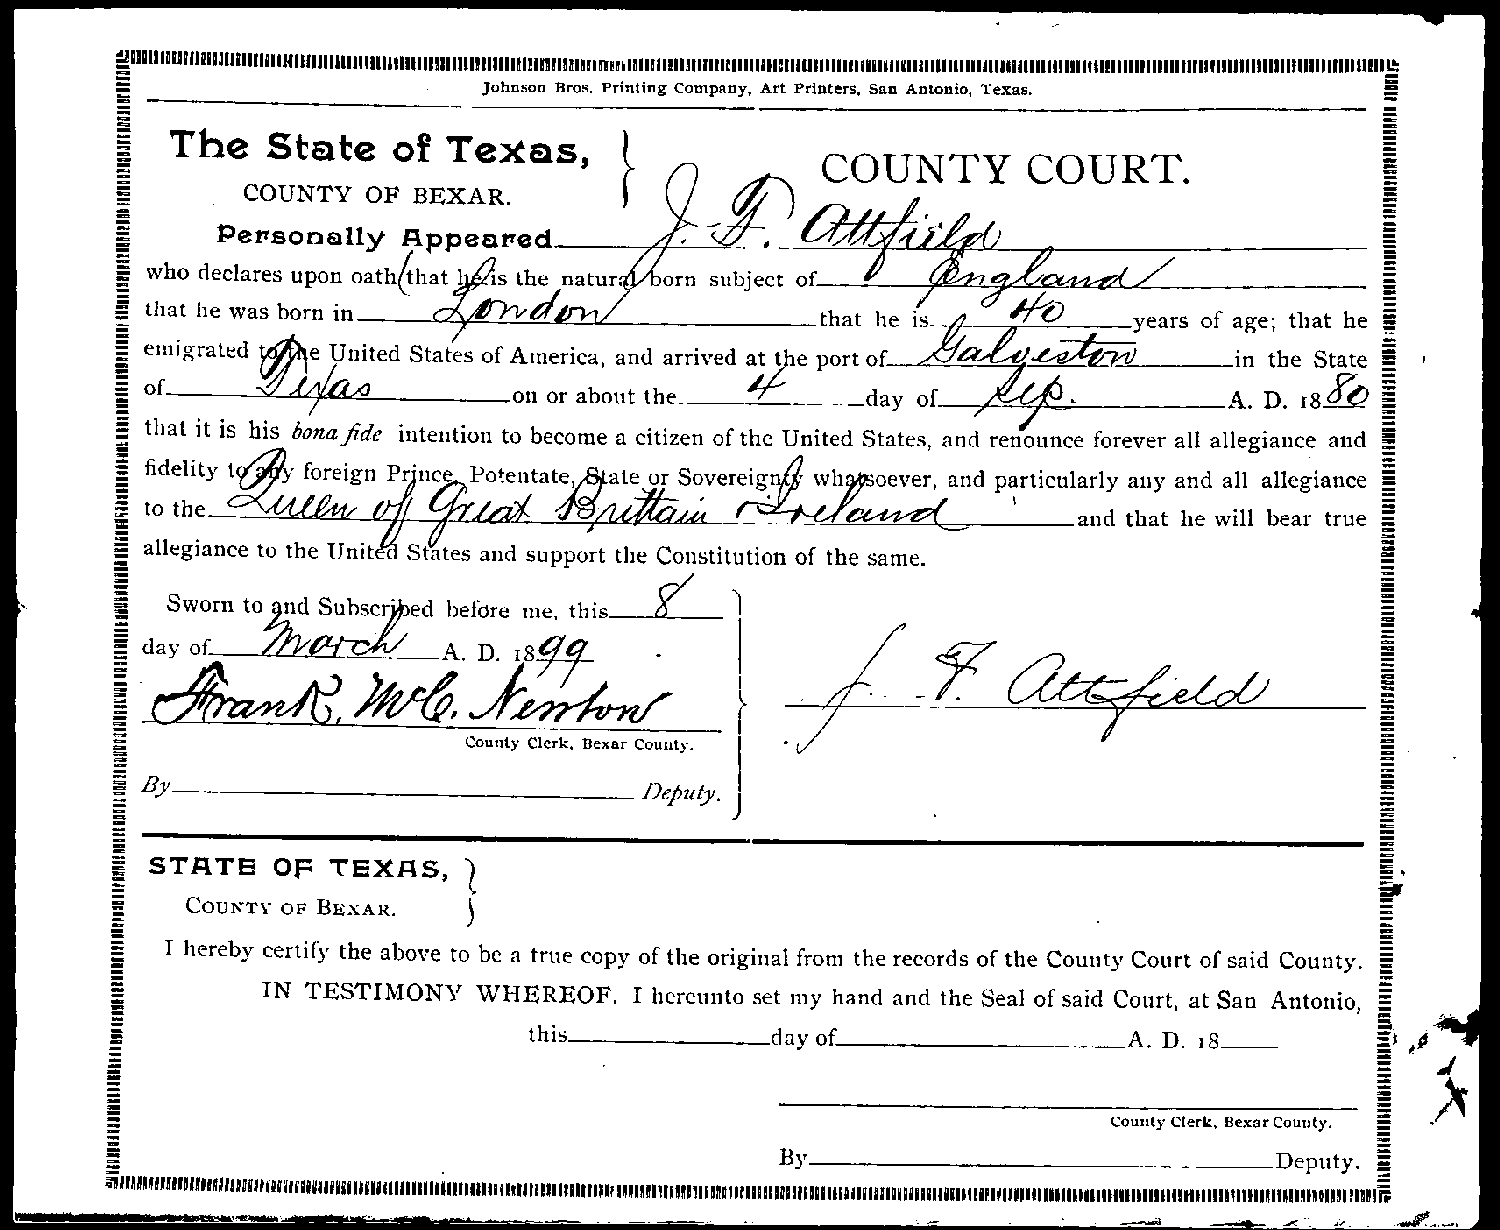 Johnson Bros. Printing Company, Art Printers, San Antonio, Texas.
The State of Texas,
COUNTY OF BEXAR.
COUNTY COURT.
Personally Appeared J. F. Attfield
who declares upon oath that he is the natural born subject of England
that he was born in London that he is 40 years of age; that he
emigrated to the United States of America, and arrived at the port of Galveston in the State
of Texas on or about the 4 day of Sep. A. D. 1880
that it is his bona fide intention to become a citizen of the United States, and renounce forever all allegiance and
fidelity to any foreign Prince, Potentate, State or Sovereignty whatsoever, and particularly any and all allegiance
to the Queen of Great Brittain & Ireland and that he will bear true
allegiance to the United States and support the Constitution of the same.
Sworn to and Subscribed before me, this 8
day of March A. D. 1899
Frank. McC. Newton
County Clerk, Bexar County.
By Deputy.
J. F. Attfield
STATE OF TEXAS,
COUNTY OF BEXAR.
I hereby certify the above to be a true copy of the original from the records of the County Court of said County.
IN TESTIMONY WHEREOF, I hereunto set my hand and the Seal of said Court, at San Antonio,
this day of A. D. 18
County Clerk, Bexar County.
By Deputy.